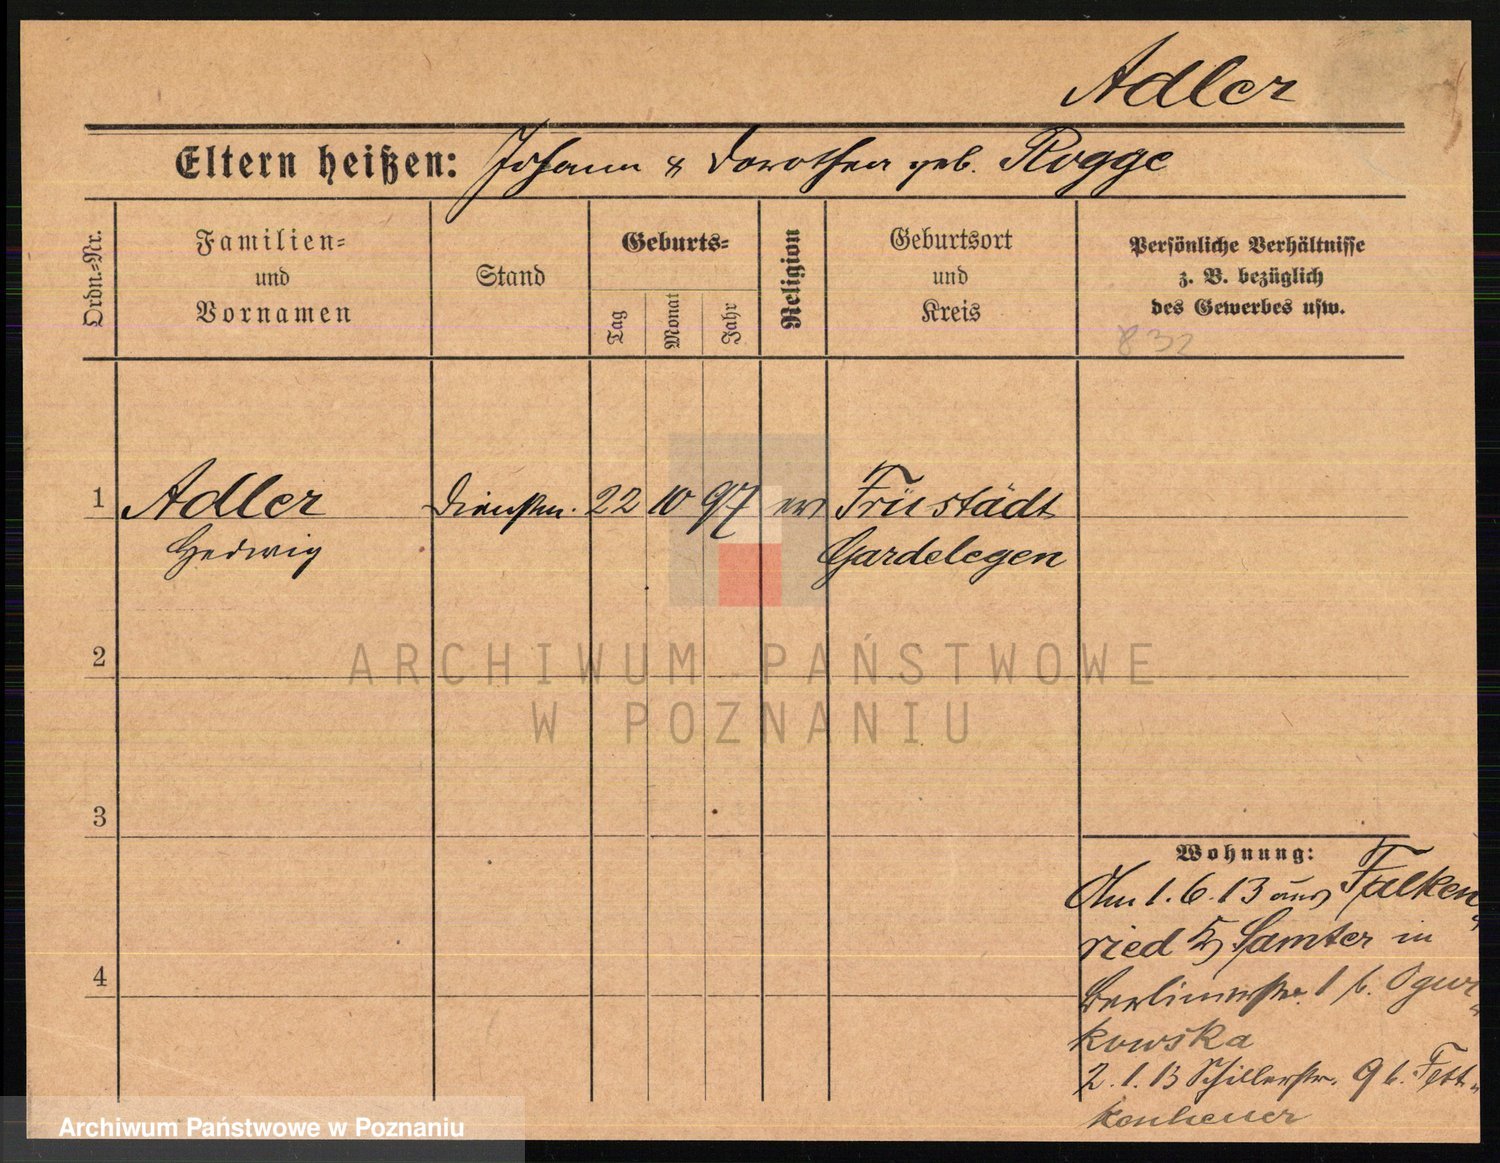 Adler
Eltern heißen: Johann & Dorothea geb. Rogge
Ordn.=Nr.
Familien=
und
Vornamen
Stand
Geburts=
Tag
Monat
Jahr
Religion
Geburtsort
und
Kreis
Persönliche Verhältnisse
z. B. bezüglich
des Gewerbes usw.
832
1 Adler Dienstm. 22 10 97 ev Früstädt
Hedwig Gardelegen
ARCHIWUM PAŃSTWOWE
W POZNANIU
2
3
4
Wohnung:
Am 1.6.13 aus Falken
ried Samter in
Berlinerstr. 1 b. Ogur
kowska
2.1.13 Schillerstr. 9 b. Fett
kenheuer
Archiwum Państwowe w Poznaniu